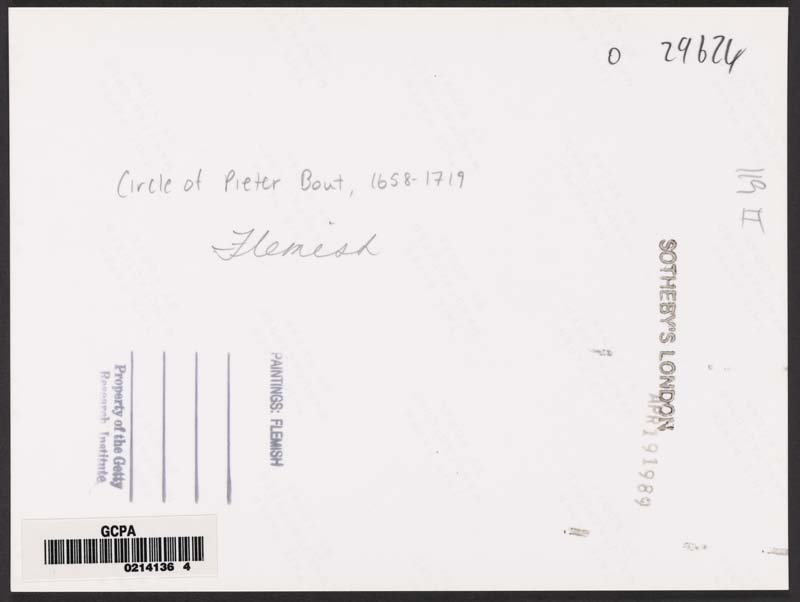 O 29624
Circle of Pieter Bout, 1658-1719
Flemish
119 II
SOTHEBY'S LONDON
APR 191989
PAINTINGS: FLEMISH
Property of the Getty
Research Institute
GCPA
0214136 4